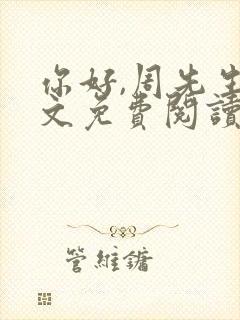 你好,周先生
文免費閱讀
管維鏞